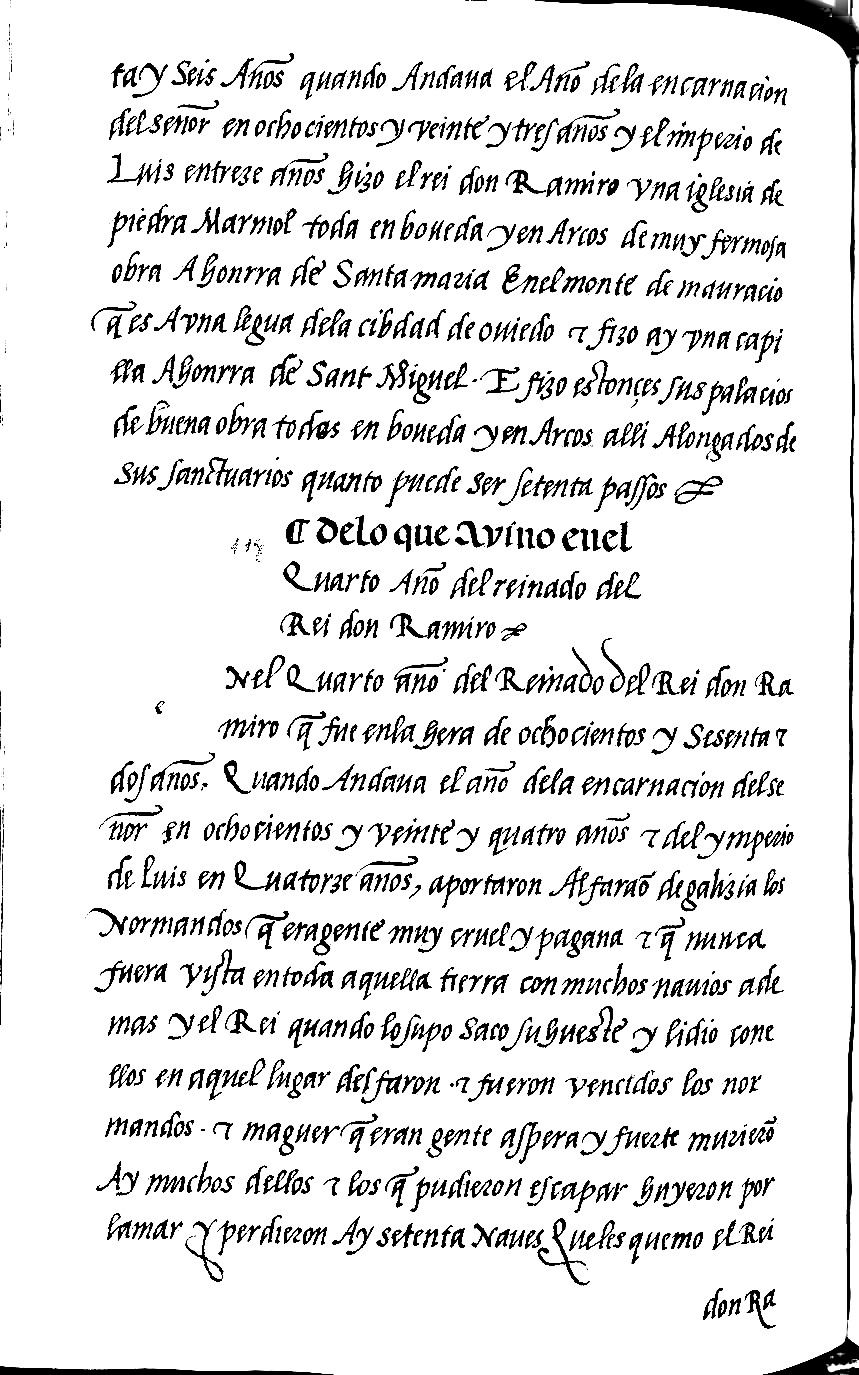 ta y Seis Años quando Andaua el Año dela encarnacion
del señor en ochocientos y veinte y tres años y el imperio de
Luis entreze años hizo el rei don Ramiro vna iglesia de
piedra Marmol toda en boueda y en Arcos de muy fermosa
obra A honrra de Santa maria Enel monte de mauracio
q̃ es A vna legua dela cibdad de ouiedo ⁊ fizo ay vna capi
lla A honrra de Sant Miguel · E fizo estonçes sus palacios
de buena obra todos en boueda y en Arcos alli Alongados de
sus sanctuarios quanto puede ser setenta passos
¶ Delo que Avino enel
Quarto Año del reinado del
Rei don Ramiro
e
Nel Quarto año del Reinado del Rei don Ra
miro q̃ fue enla hera de ochocientos y Sesenta ⁊
dos años. Quando Andaua el año dela encarnacion del se
ñor en ochocientos y veinte y quatro años ⁊ del ymperio
de luis en Quatorze años, aportaron Al faraõ de galizia los
Normandos q̃ era gente muy cruel y pagana ⁊ q̃ nunca
fuera vista en toda aquella tierra con muchos nauios a de
mas y el Rei quando lo supo saco su hueste y lidio cone
llos en aquel lugar del faron · ⁊ fueron vencidos los nor
mandos · ⁊ maguer q̃ eran gente aspera y fuerte murierõ
Ay muchos dellos ⁊ los q̃ pudieron escapar huyeron por
la mar y perdieron Ay setenta Naues Queles quemo el Rei
don Ra